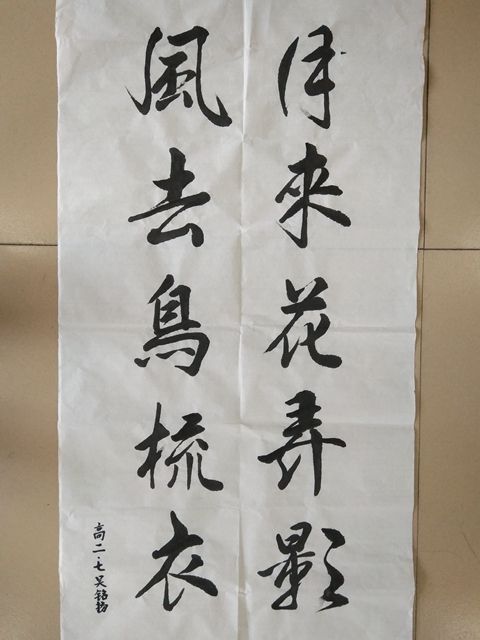 月來花弄影
風去鳥梳衣
高二·七 吴铭扬